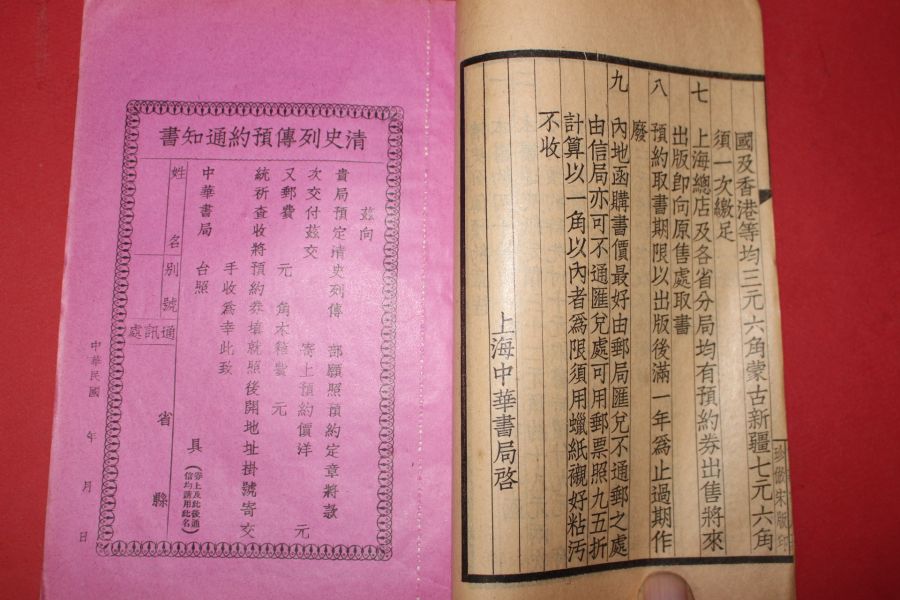 國及香港等均三元六角蒙古新疆七元六角
須一次繳足
七 上海總店及各省分局均有預約券出售將來
出版即向原售處取書
八 預約取書期限以出版後滿一年為止過期作
廢
九 內地函購書價最好由郵局匯兌不通郵之處
由信局亦可不通匯兌處可用郵票照九五折
計算以一角以內者為限須用蠟紙襯好粘污
不收
上海中華書局啓
珍倣宋版印
清史列傳預約通知書
茲向
貴局預定清史列傳 部願照預約定章將款
次交付茲交 寄上預約價洋 元
又郵費 元 角木箱費 元
統祈查收將預約券填就照後開地址掛號寄交
手收為幸此致
中華書局 台照
具(券上及此後通信均請用此名)
姓名
別號
通訊處
省 縣
中華民國 年 月 日